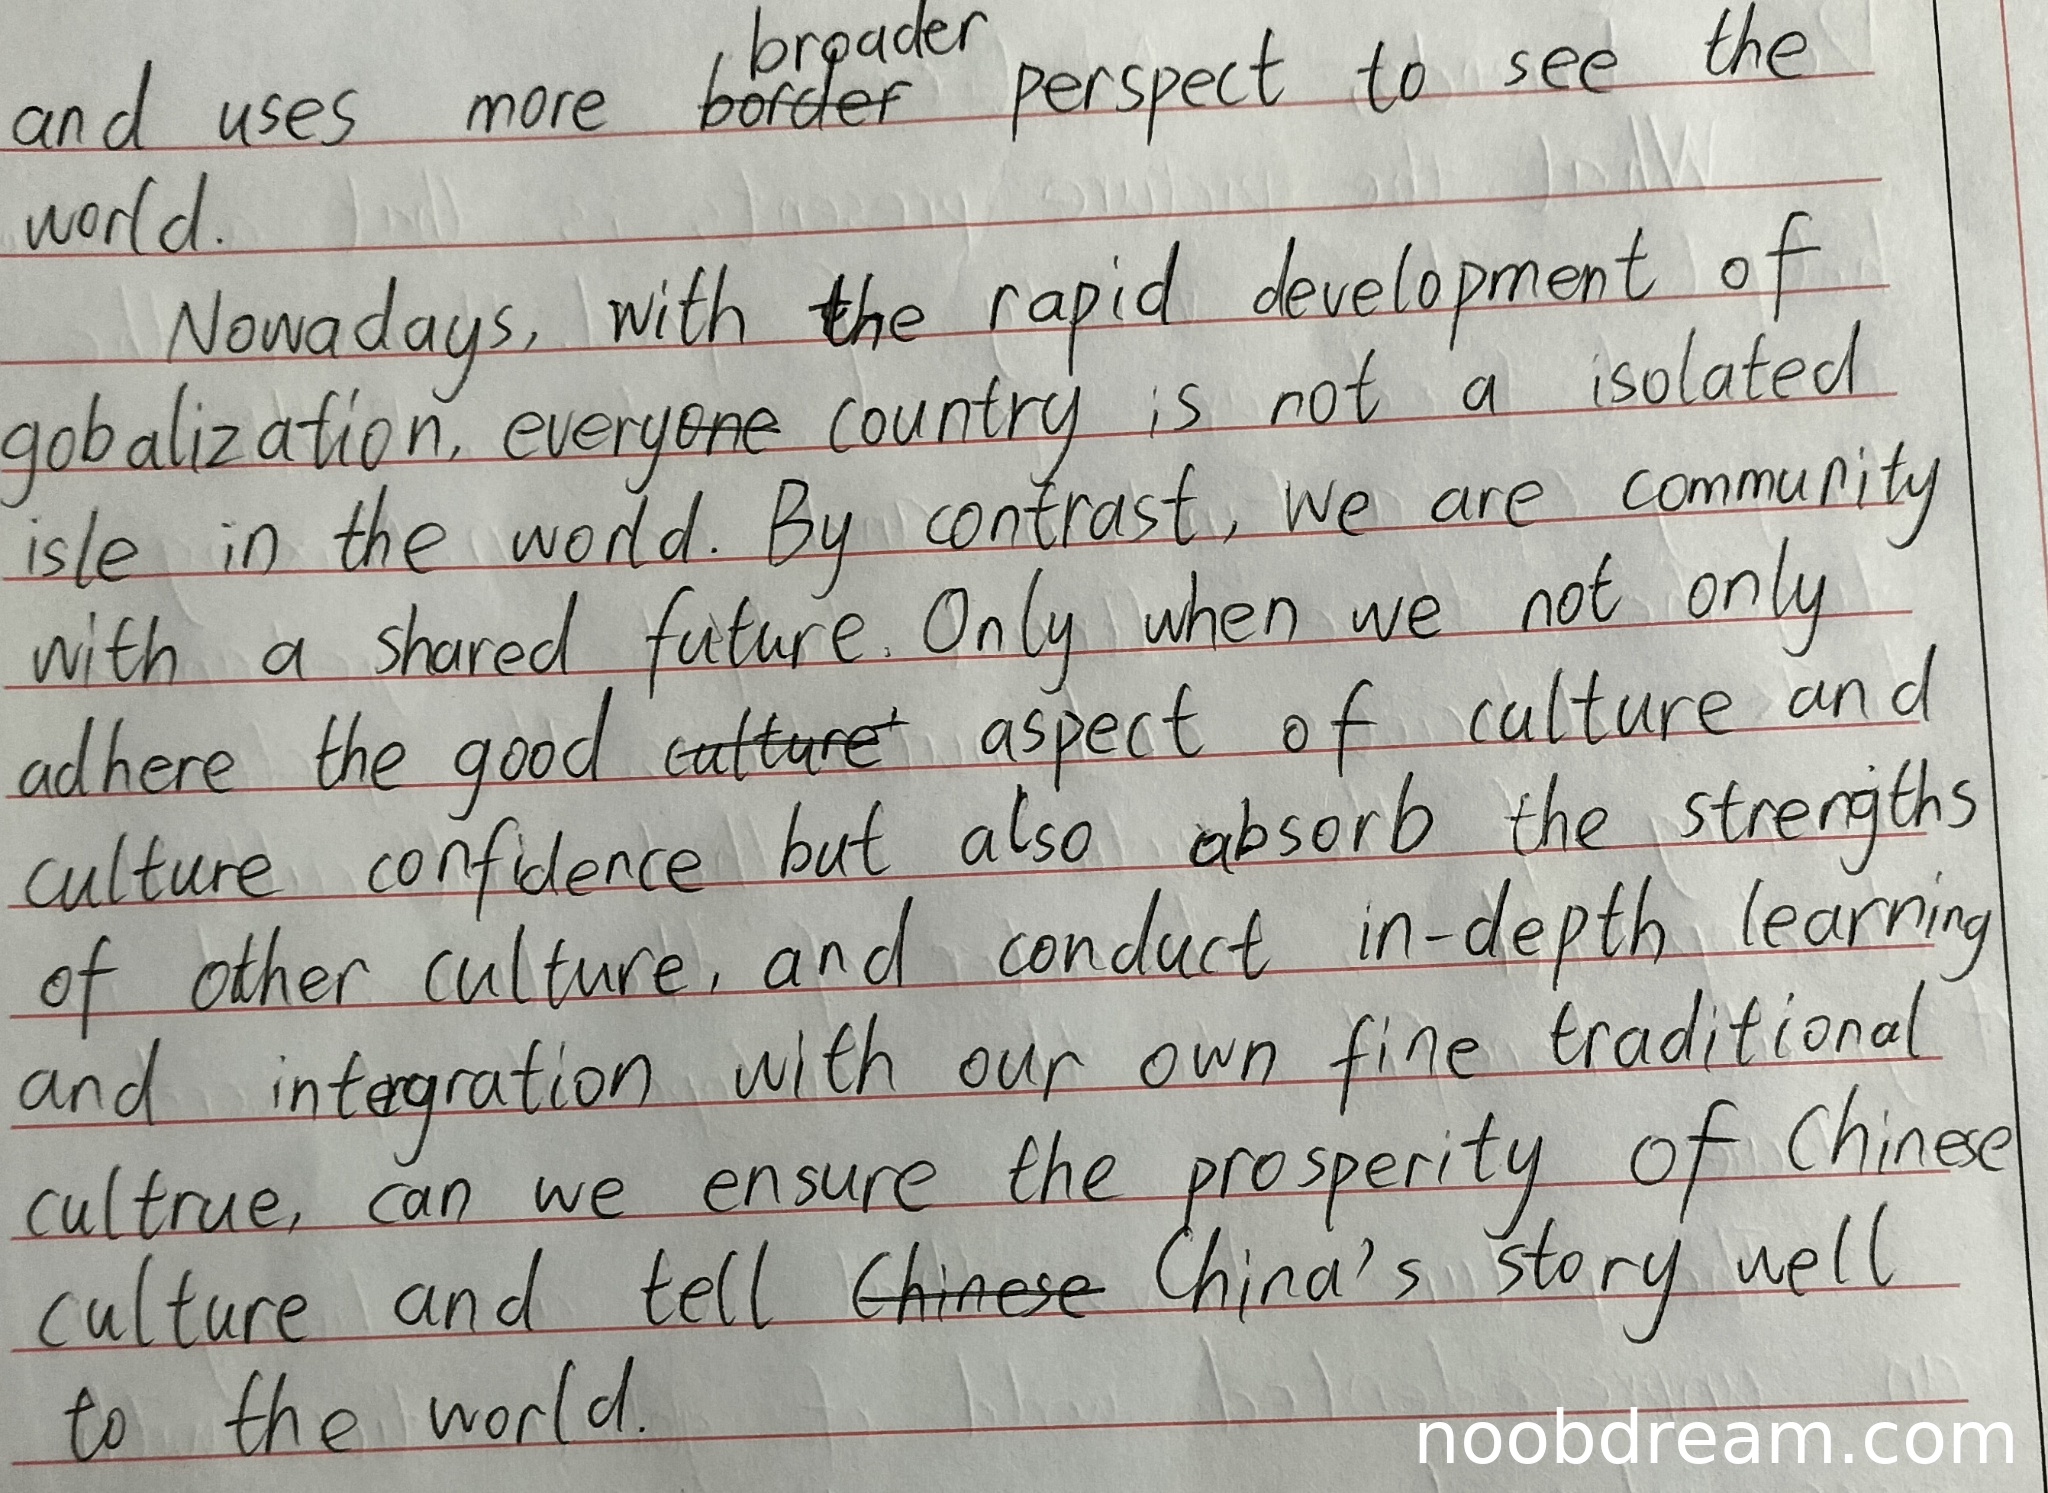 and uses more border broader perspect to see the
world.
Nowadays, with the rapid development of
gobalization, everyone country is not a isolated
isle in the world. By contrast, we are community
with a shared future. Only when we not only
adhere the good culture aspect of culture and
culture confidence but also absorb the strengths
of other culture, and conduct in-depth learning
and integration with our own fine traditional
cultrue, can we ensure the prosperity of Chinese
culture and tell Chinese China's story well
to the world.
noobdream.com